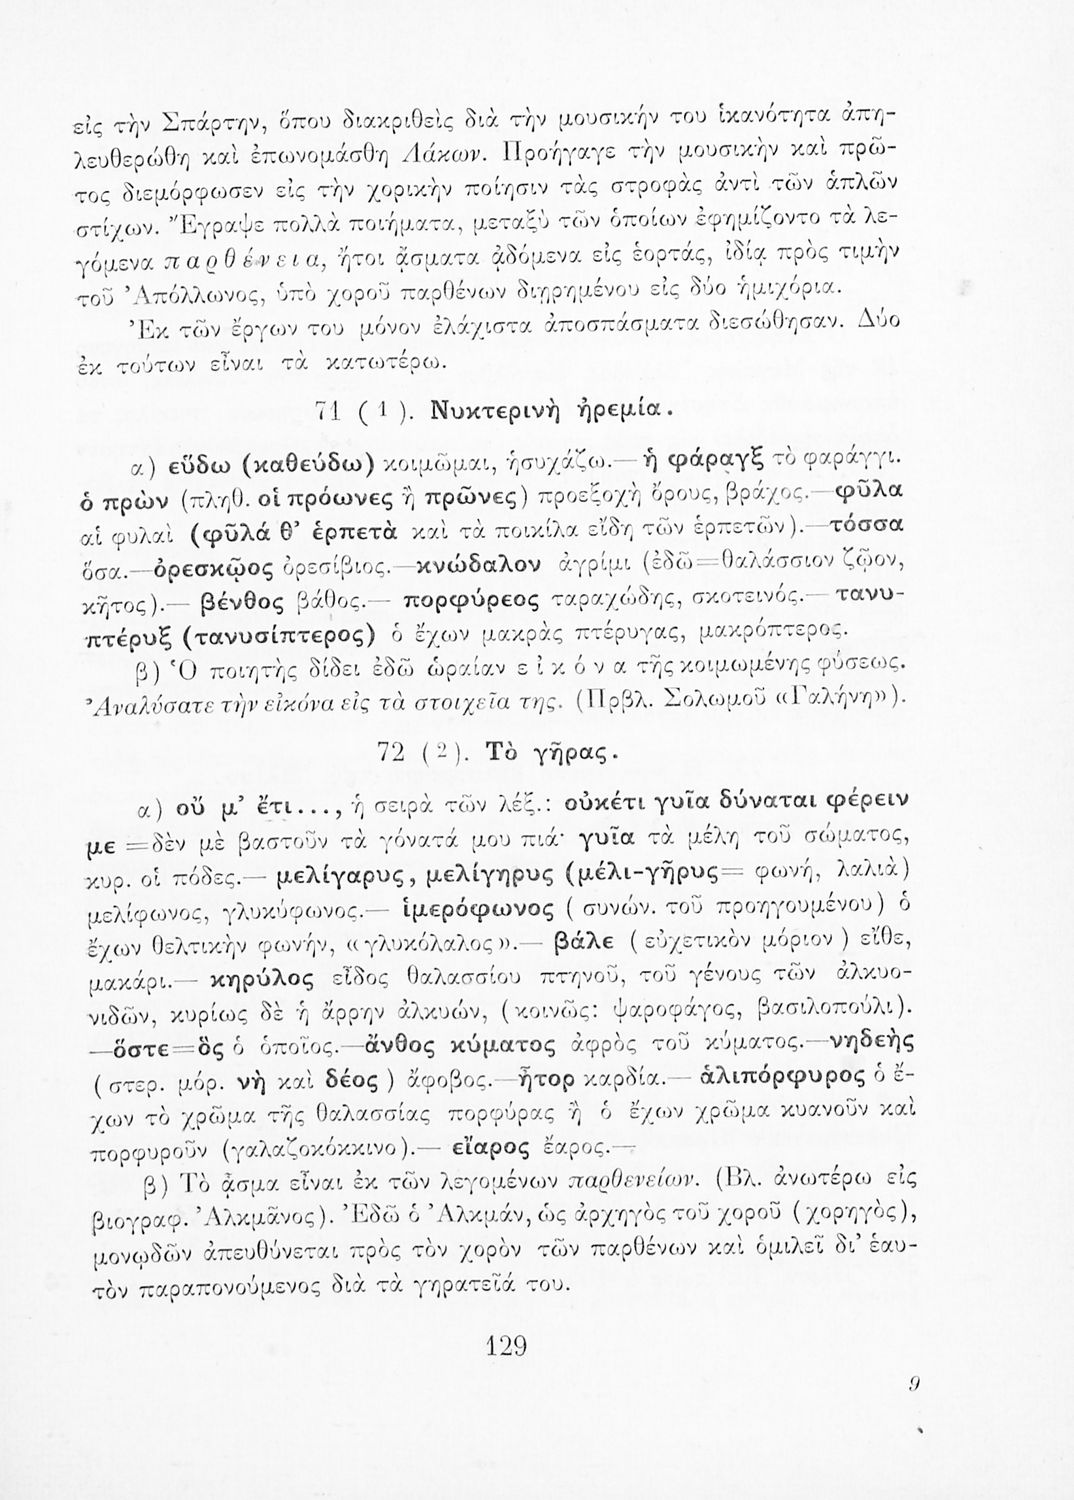 εἰς τὴν Σπάρτην, ὅπου διακριθεὶς διὰ τὴν μουσικήν του ἱκανότητα ἀπη-
λευθερώθη καὶ ἐπωνομάσθη Λάκων. Προήγαγε τὴν μουσικὴν καὶ πρῶ-
τος διεμόρφωσεν εἰς τὴν χορικὴν ποίησιν τὰς στροφὰς ἀντὶ τῶν ἁπλῶν
στίχων. Ἔγραψε πολλὰ ποιήματα, μεταξὺ τῶν ὁποίων ἐφημίζοντο τὰ λε-
γόμενα παρθένεια, ἤτοι ᾄσματα ᾀδόμενα εἰς ἑορτάς, ἰδίᾳ πρὸς τιμὴν
τοῦ Ἀπόλλωνος, ὑπὸ χοροῦ παρθένων διῃρημένου εἰς δύο ἡμιχόρια.
Ἐκ τῶν ἔργων του μόνον ἐλάχιστα ἀποσπάσματα διεσώθησαν. Δύο
ἐκ τούτων εἶναι τὰ κατωτέρω.
71 (1). Νυκτερινὴ ἠρεμία.
α) εὕδω (καθεύδω) κοιμῶμαι, ἡσυχάζω.— ἡ φάραγξ τὸ φαράγγι.
ὁ πρὼν (πληθ. οἱ πρόωνες ἢ πρῶνες) προεξοχὴ ὄρους, βράχος.—φῦλα
αἱ φυλαὶ (φῦλά θ’ ἑρπετὰ καὶ τὰ ποικίλα εἴδη τῶν ἑρπετῶν).—τόσσα
ὅσα.—ὀρεσκῷος ὀρεσίβιος.—κνώδαλον ἀγρίμι (ἐδῶ=θαλάσσιον ζῷον,
κῆτος).— βένθος βάθος.— πορφύρεος ταραχώδης, σκοτεινός.— τανυ-
πτέρυξ (τανυσίπτερος) ὁ ἔχων μακρὰς πτέρυγας, μακρόπτερος.
β) Ὁ ποιητὴς δίδει ἐδῶ ὡραίαν εἰκόνα τῆς κοιμωμένης φύσεως.
Ἀναλύσατε τὴν εἰκόνα εἰς τὰ στοιχεῖα της. (Πρβλ. Σολωμοῦ «Γαλήνη»).
72 (2). Τὸ γῆρας.
α) οὔ μ’ ἔτι..., ἡ σειρὰ τῶν λέξ.: οὐκέτι γυῖα δύναται φέρειν
με =δὲν μὲ βαστοῦν τὰ γόνατά μου πιά· γυῖα τὰ μέλη τοῦ σώματος,
κυρ. οἱ πόδες.— μελίγαρυς, μελίγηρυς (μέλι-γῆρυς= φωνή, λαλιὰ)
μελίφωνος, γλυκύφωνος.— ἱμερόφωνος (συνών. τοῦ προηγουμένου) ὁ
ἔχων θελτικὴν φωνήν, «γλυκόλαλος».— βάλε (εὐχετικὸν μόριον) εἴθε,
μακάρι.— κηρύλος εἶδος θαλασσίου πτηνοῦ, τοῦ γένους τῶν ἀλκυο-
νιδῶν, κυρίως δὲ ἡ ἄρρην ἀλκυών, (κοινῶς: ψαροφάγος, βασιλοπούλι).
—ὅστε=ὃς ὁ ὁποῖος.—ἄνθος κύματος ἀφρὸς τοῦ κύματος.—νηδεὴς
(στερ. μόρ. νὴ καὶ δέος) ἄφοβος.—ἦτορ καρδία.— ἁλιπόρφυρος ὁ ἔ-
χων τὸ χρῶμα τῆς θαλασσίας πορφύρας ἢ ὁ ἔχων χρῶμα κυανοῦν καὶ
πορφυροῦν (γαλαζοκόκκινο).— εἴαρος ἔαρος.—
β) Τὸ ᾆσμα εἶναι ἐκ τῶν λεγομένων παρθενείων. (Βλ. ἀνωτέρω εἰς
βιογραφ. Ἀλκμᾶνος). Ἐδῶ ὁ Ἀλκμάν, ὡς ἀρχηγὸς τοῦ χοροῦ (χορηγὸς),
μονῳδῶν ἀπευθύνεται πρὸς τὸν χορὸν τῶν παρθένων καὶ ὁμιλεῖ δι’ ἑαυ-
τὸν παραπονούμενος διὰ τὰ γηρατειά του.
129
9